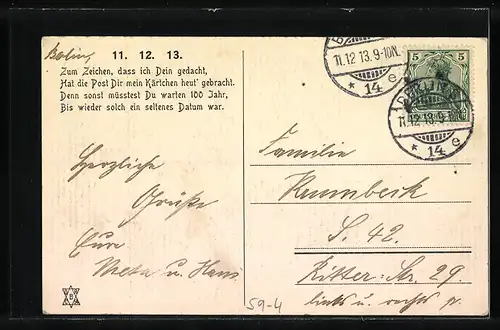 Berlin, 11. 12. 13.
Zum Zeichen, dass ich Dein gedacht,
Hat die Post Dir mein Kärtchen heut' gebracht.
Denn sonst müsstest Du warten 100 Jahr,
Bis wieder solch ein seltenes Datum war.
Herzliche
Grüße
Eure
Meta u. Hans
B
59-4
11.12.13.9-10N.
* 14 e
5 5
BERLIN
11.12.13.9-10N.
* 14 e
Familie
S. 42.
Ritter-Str. 29.
links u. rechts p.